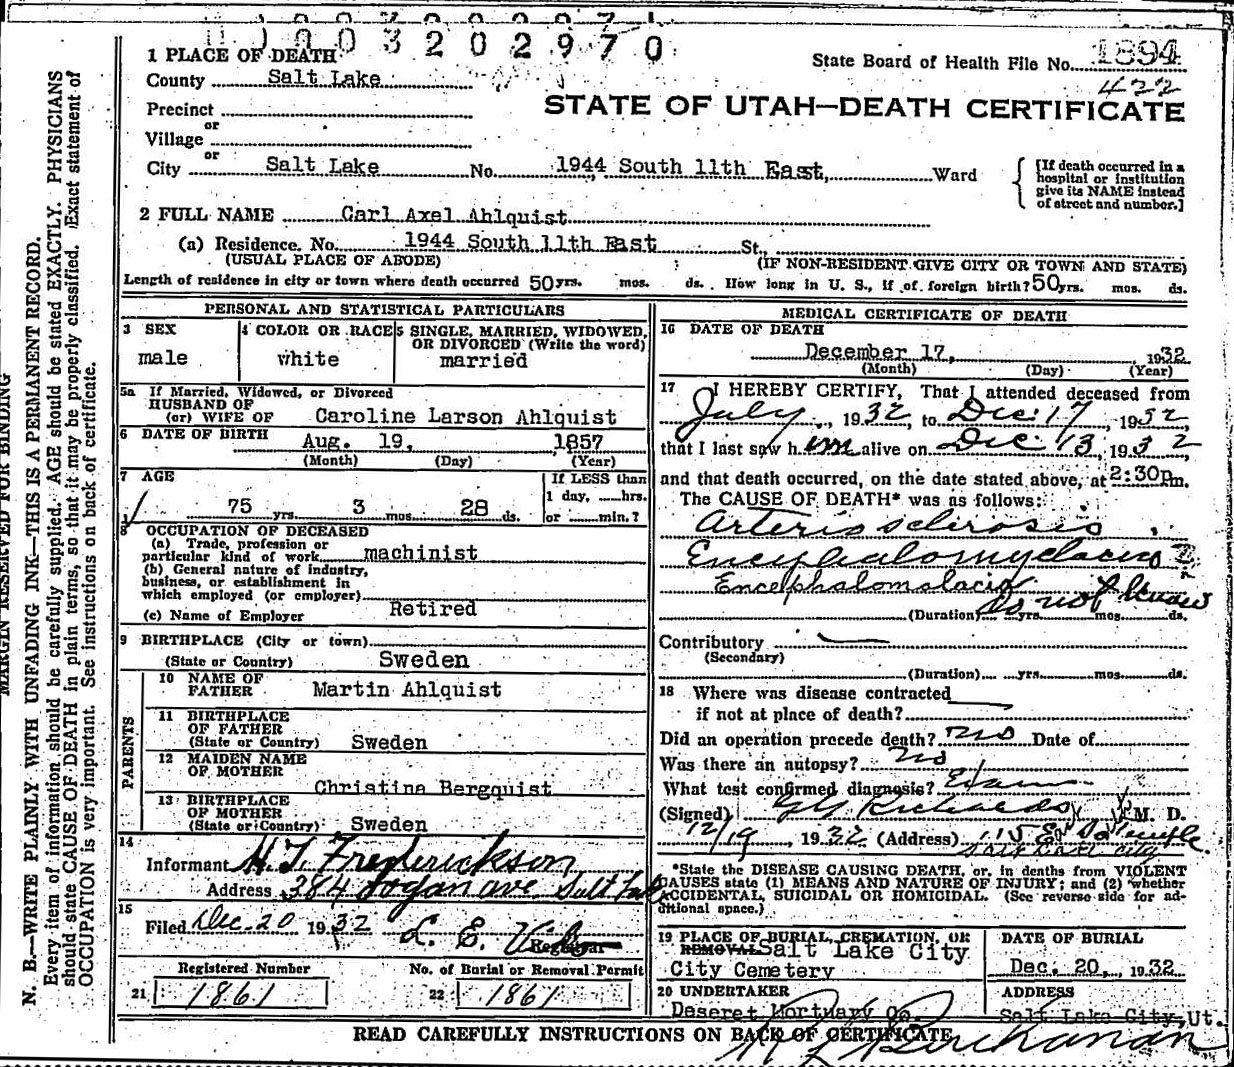 1003202970
1 PLACE OF DEATH
State Board of Health File No. 1894
County Salt Lake
422
STATE OF UTAH—DEATH CERTIFICATE
Precinct
or
Village
or
City Salt Lake No. 1944 South 11th East, Ward
[If death occurred in a
hospital or institution
give its NAME instead
of street and number.]
2 FULL NAME Carl Axel Ahlquist
(a) Residence. No. 1944 South 11th East St.,
(USUAL PLACE OF ABODE) (IF NON-RESIDENT GIVE CITY OR TOWN AND STATE)
Length of residence in city or town where death occurred 50 yrs. mos. ds. How long in U. S., if of foreign birth? 50 yrs. mos. ds.
PERSONAL AND STATISTICAL PARTICULARS
3 SEX
male
4 COLOR OR RACE
white
5 SINGLE, MARRIED, WIDOWED,
OR DIVORCED (Write the word)
married
5a If Married, Widowed, or Divorced
HUSBAND OF
(or) WIFE OF Caroline Larson Ahlquist
6 DATE OF BIRTH
Aug. 19, 1857
(Month) (Day) (Year)
7 AGE
75 yrs. 3 mos. 28 ds.
If LESS than
1 day, ......hrs.
or ......min.?
8 OCCUPATION OF DECEASED
(a) Trade, profession or
particular kind of work machinist
(b) General nature of industry,
business, or establishment in
which employed (or employer)
Retired
(c) Name of Employer
9 BIRTHPLACE (City or town)
(State or Country) Sweden
PARENTS
10 NAME OF
FATHER Martin Ahlquist
11 BIRTHPLACE
OF FATHER
(State or Country) Sweden
12 MAIDEN NAME
OF MOTHER
Christina Bergquist
13 BIRTHPLACE
OF MOTHER
(State or Country) Sweden
14
Informant H. T. Frederickson
Address 384 Logan ave Salt Lake
15
Filed Dec. 20 1932 L. E.
Registrar
Registered Number
21 1861
No. of Burial or Removal Permit
22 1861
MEDICAL CERTIFICATE OF DEATH
16 DATE OF DEATH
December 17, 1932
(Month) (Day) (Year)
17 I HEREBY CERTIFY, That I attended deceased from
July, 1932, to Dec. 17, 1932
that I last saw him alive on Dec. 13, 1932,
and that death occurred, on the date stated above, at 2:30Pm.
The CAUSE OF DEATH* was as follows:
Arterio sclerosis
Encephalomyelacia ?
Encephalomalacia
do not know
(Duration) yrs. mos. ds.
Contributory
(Secondary)
(Duration) yrs. mos. ds.
18 Where was disease contracted
if not at place of death?
Did an operation precede death? no Date of
Was there an autopsy? no
What test confirmed diagnosis? Exam
(Signed) G G Richards M. D.
12/19, 1932 (Address) 115 E So Temple
Salt Lake City
*State the DISEASE CAUSING DEATH, or, in deaths from VIOLENT
CAUSES state (1) MEANS AND NATURE OF INJURY; and (2) whether
ACCIDENTAL, SUICIDAL OR HOMICIDAL. (See reverse side for ad-
ditional space.)
19 PLACE OF BURIAL, CREMATION, OR
REMOVAL Salt Lake City
City Cemetery
DATE OF BURIAL
Dec. 20, 1932
20 UNDERTAKER
Deseret Mortuary Co.
ADDRESS
Salt Lake City, Ut.
READ CAREFULLY INSTRUCTIONS ON BACK OF CERTIFICATE
Buchanan
MARGIN RESERVED FOR BINDING
N. B.—WRITE PLAINLY WITH UNFADING INK—THIS IS A PERMANENT RECORD.
Every item of information should be carefully supplied. AGE should be stated EXACTLY. PHYSICIANS
should state CAUSE OF DEATH in plain terms, so that it may be properly classified. Exact statement of
OCCUPATION is very important. See instructions on back of certificate.